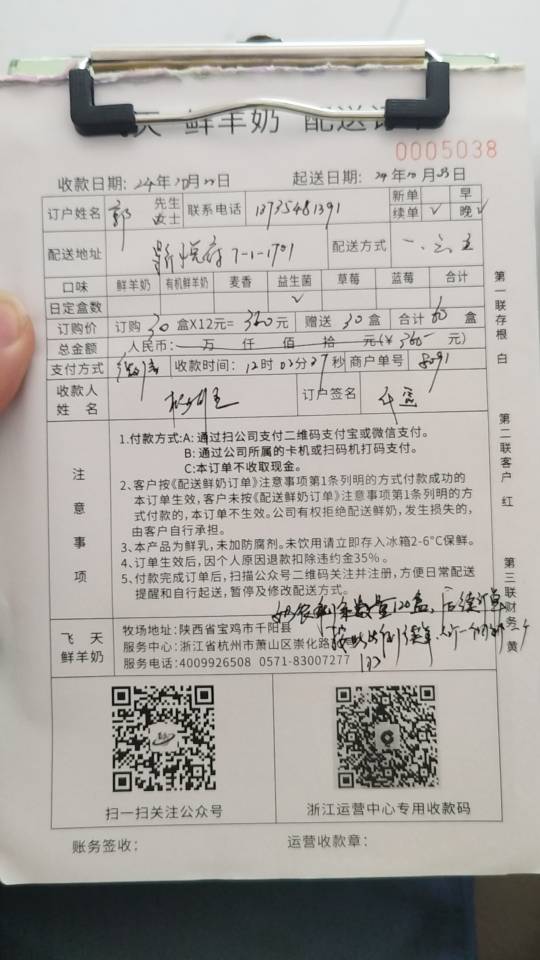 鲜羊奶 配送
0005038
收款日期: 24年10月22日 起送日期: 24年10月23日
订户姓名 郭 先生 女士 联系电话 13735481391 新单 续单 ✓ 早 晚 ✓
配送地址 7-1-1701 配送方式
口味 鲜羊奶 有机鲜羊奶 麦香 益生菌 草莓 蓝莓 合计
日定盒数 ✓
订购价 订购 30 盒X12元= 360 元 赠送 30 盒 合计 60 盒
总金额 人民币: 万 仟 佰 拾 元(¥ 360 元)
支付方式 微信 收款时间: 12时 02分 27秒 商户单号 8091
收款人姓名 订户签名
注意事项
1.付款方式:A: 通过扫公司支付二维码支付宝或微信支付。
B: 通过公司所属的卡机或扫码机打码支付。
C:本订单不收取现金。
2、客户按《配送鲜奶订单》注意事项第1条列明的方式付款成功的
本订单生效,客户未按《配送鲜奶订单》注意事项第1条列明的方
式付款的,本订单不生效。公司有权拒绝配送鲜奶,发生损失的,
由客户自行承担。
3、本产品为鲜乳,未加防腐剂。未饮用请立即存入冰箱2-6°C保鲜。
4、订单生效后,因个人原因退款扣除违约金35%。
5、付款完成订单后,扫描公众号二维码关注并注册,方便日常配送
提醒和自行起送,暂停及修改配送方式。
飞天鲜羊奶
牧场地址: 陕西省宝鸡市千阳县
服务中心: 浙江省杭州市萧山区崇化路
服务电话: 4009926508 0571-83007277
扫一扫关注公众号
浙江运营中心专用收款码
账务签收: 运营收款章:
第一联存根 白
第二联客户 红
第三联财务 黄